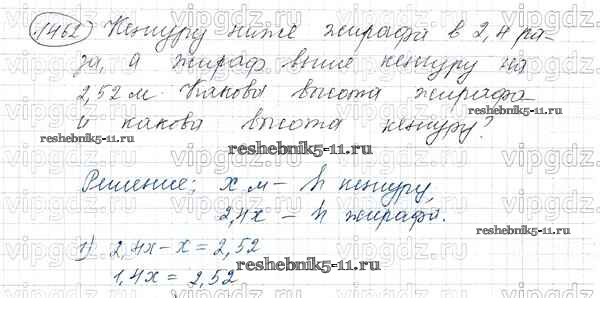 1462) Кенгуру ниже жирафа в 2,4 ра-
за, а жираф выше кенгуру на
2,52 м. Какова высота жирафа
и какова высота кенгуру?
reshebnik5-11.ru
reshebnik5-11.ru
Решение: х м – h кенгуру,
2,4х – h жирафа.
1) 2,4х – х = 2,52
reshebnik5-11.ru
1,4х = 2,52
vipgdz.ru